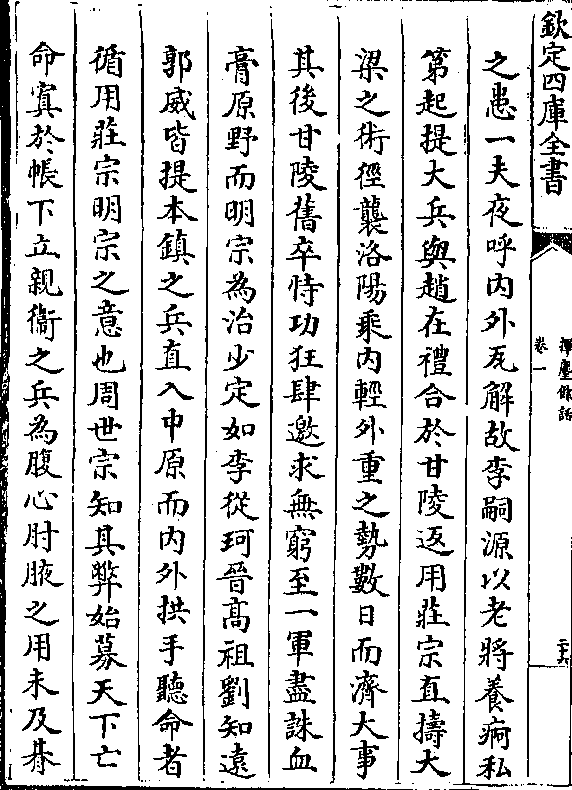 欽定四庫全書
揮麈餘話
卷一
二十六
之患一夫夜呼内外瓦解故李嗣源以老將養痾私
第起提大兵與趙在禮合於甘陵返用莊宗直擣大
梁之術徑襲洛陽乘内輕外重之勢數日而濟大事
其後甘陵舊卒恃功狂肆邀求無窮至一軍盡誅血
膏原野而明宗為治少定如李從珂晉髙祖劉知遠
郭威皆提本鎮之兵直入中原而内外拱手聽命者
循用莊宗明宗之意也周世宗知其弊始募天下亡
命寘於帳下立親衞之兵為腹心肘腋之用未及朞